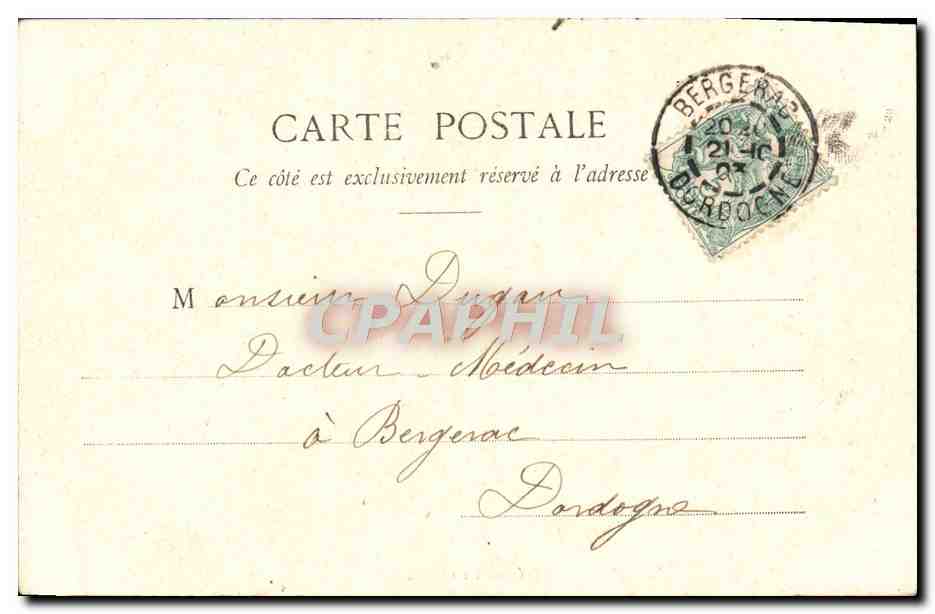 CARTE POSTALE
Ce côté est exclusivement réservé à l'adresse
BERGERAC
21-10
03
DORDOGNE
Monsieur Dugau
CPAPHIL
Docteur-Médecin
à Bergerac
Dordogne